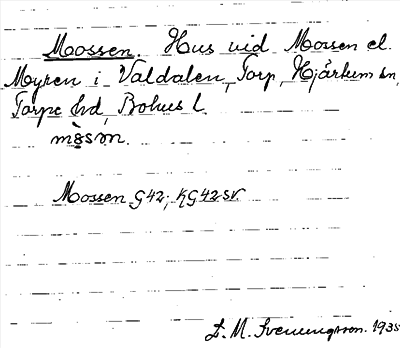 Mossen. Hus vid Mossen el.
Myren i Valdalen, Torp, Hjärtum sn,
Torpe hd, Bohus l.
mòsɷn.
Mossen G42; KG42SV
M. Svenungsson. 1935